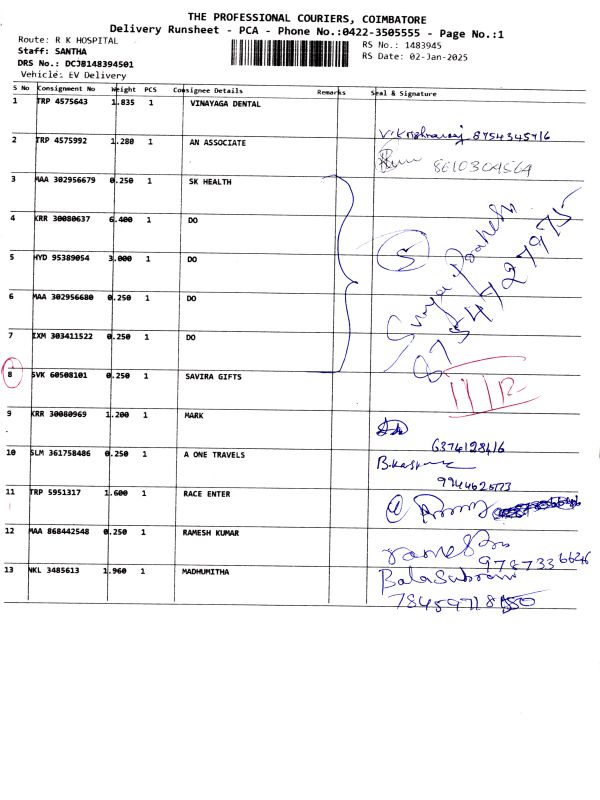 THE PROFESSIONAL COURIERS, COIMBATORE
Delivery Runsheet - PCA - Phone No.:0422-3505555 - Page No.:1
Route: R K HOSPITAL
RS No.: 1483945
Staff: SANTHA
RS Date: 02-Jan-2025
DRS No.: DCJB148394501
Vehicle: EV Delivery
S No Consignment No Weight PCS Consignee Details Remarks Seal & Signature
1 TRP 4575643 1.835 1 VINAYAGA DENTAL
8754345716
2 TRP 4575992 1.280 1 AN ASSOCIATE
8610304564
3 MAA 302956679 0.250 1 SK HEALTH
4 KRR 30080637 6.400 1 DO
5 HYD 95389054 3.000 1 DO
5
Surya Prakash
8754727975
6 MAA 302956680 0.250 1 DO
7 IXM 303411522 0.250 1 DO
8 SVK 60508101 0.250 1 SAVIRA GIFTS
9 KRR 30080969 1.200 1 MARK
6374128416
10 SLM 361758486 0.250 1 A ONE TRAVELS
9944625173
11 TRP 5951317 1.600 1 RACE ENTER
12 MAA 868442548 0.250 1 RAMESH KUMAR
9787336646
13 NKL 3485613 1.960 1 MADHUMITHA